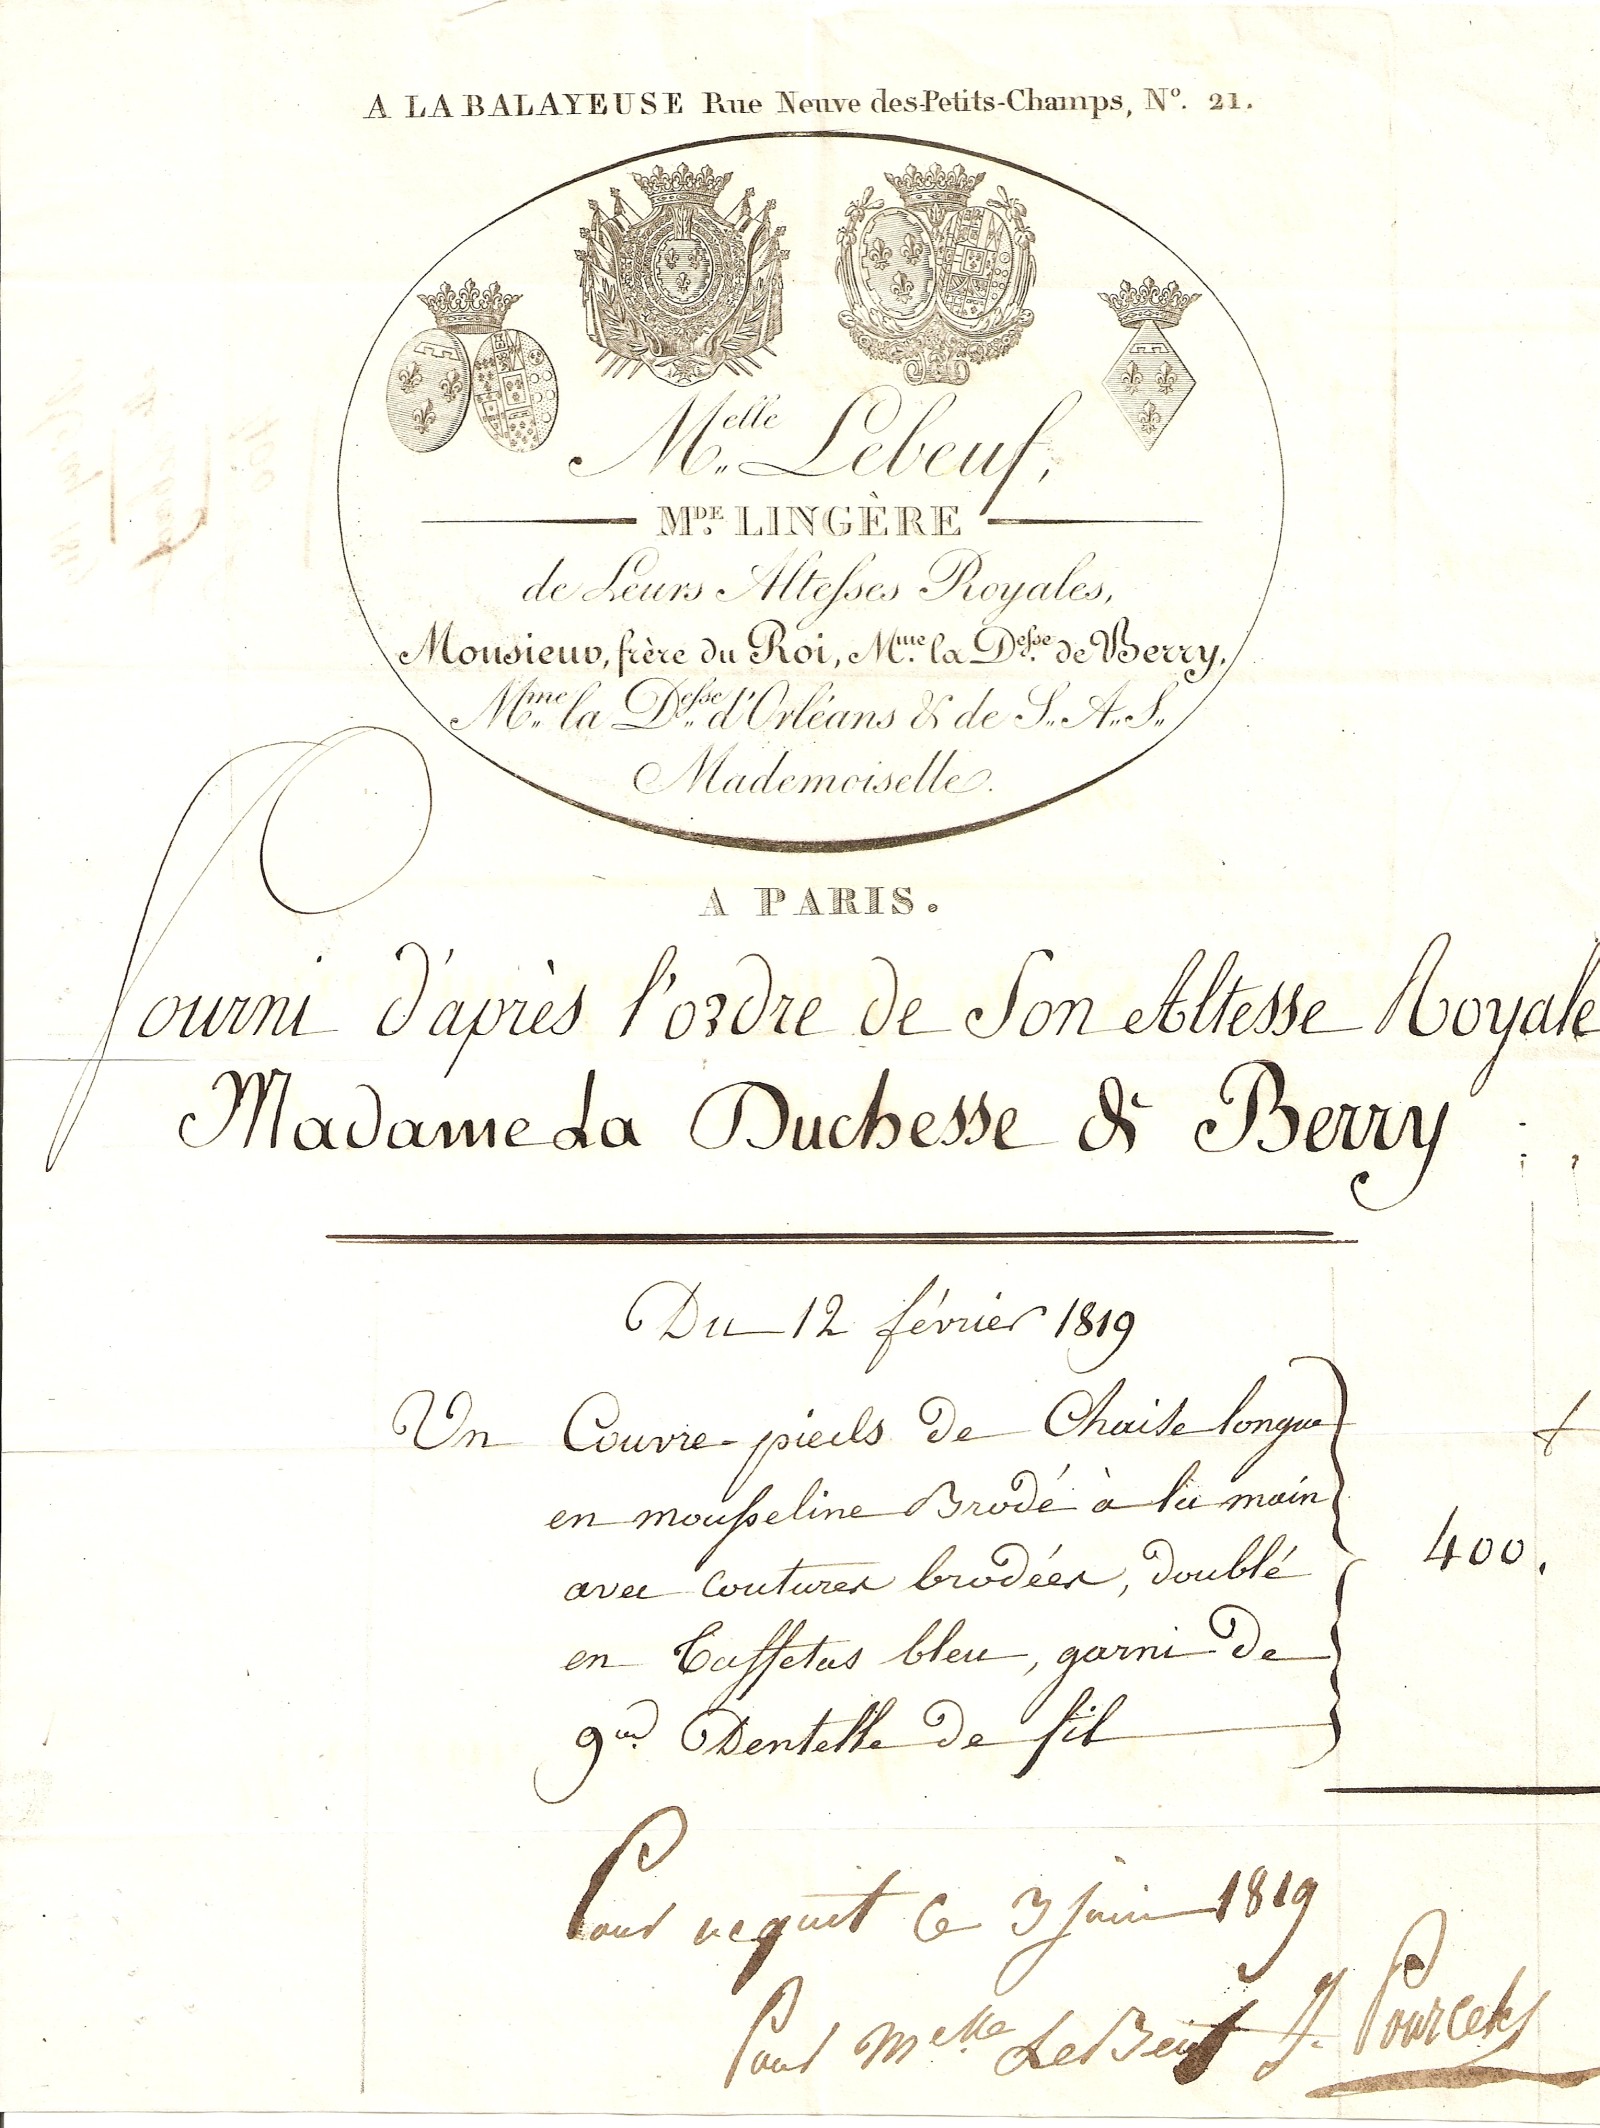 A LA BALAYEUSE Rue Neuve des-Petits-Champs, Nº. 21.
Melle Lebeuf,
MDE. LINGÈRE
de Leurs Altesses Royales,
Monsieur, frère du Roi, Mme. la Desse. de Berry,
Mme. la Desse. d'Orléans & de S. A. S.
Mademoiselle.
A PARIS.
Fourni d'après l'ordre de Son Altesse Royale
Madame La Duchesse de Berry
Du 12 février 1819
Un Couvre-pieds de Chaise longue
en mousseline Brodé à la main
avec coutures brodées, doublé
en taffetas bleu, garni de
gde. Dentelle de fil
400.
Pour acquit ce 3 juin 1819
Pour Melle LeBeuf J.